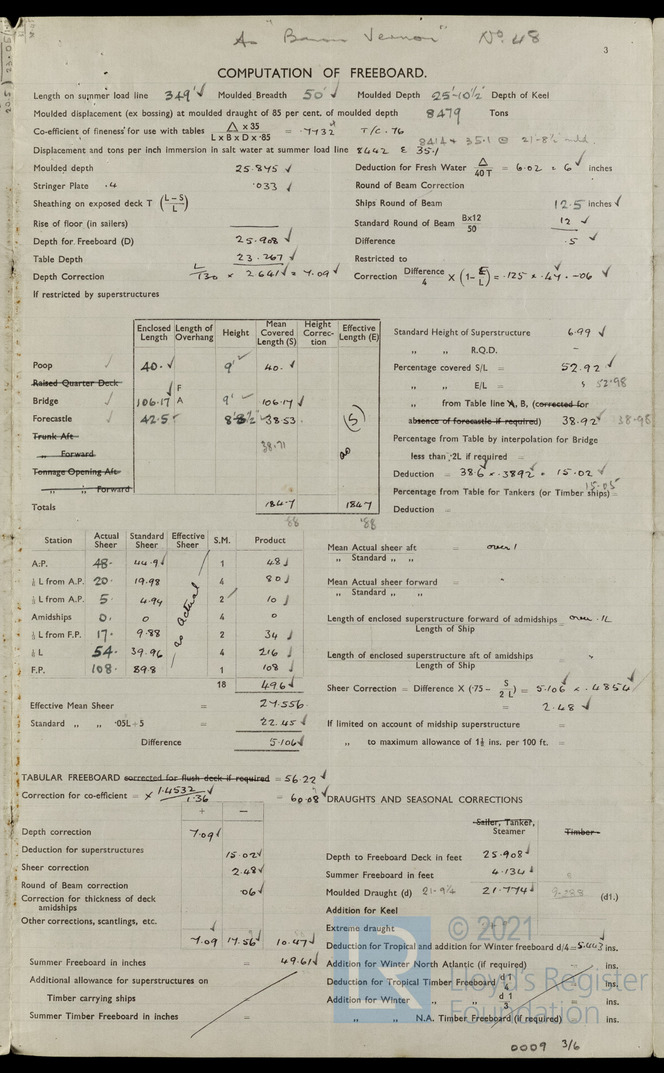 "Baron Vernon" No. 48
3
COMPUTATION OF FREEBOARD.
Length on summer load line 349' ✓ Moulded Breadth 50' ✓ Moulded Depth 25'-10½" Depth of Keel
Moulded displacement (ex bossing) at moulded draught of 85 per cent. of moulded depth 8479 Tons
Co-efficient of fineness for use with tables Δ x 35 / L x B x D x ·85 = ·7732 T/C .76
8414 & 35.1 @ 21-8½ mld.
Displacement and tons per inch immersion in salt water at summer load line 8442 & 35.1
Moulded depth 25.875 ✓
Stringer Plate .4 .033 ✓
Sheathing on exposed deck T (L-S / L)
Rise of floor (in sailers)
Depth for Freeboard (D) 25.908 ✓
Table Depth 23.267 ✓
Depth Correction L/130 x 2.641 ✓ = 7.09 ✓
If restricted by superstructures
Deduction for Fresh Water Δ / 40 T = 6.02 = 6 ✓ inches
Round of Beam Correction
Ships Round of Beam 12.5 inches ✓
Standard Round of Beam Bx12 / 50 12 ✓
Difference .5 ✓
Restricted to
Correction Difference / 4 X (1- E/L) = .125 x .47 = -06 ✓
Enclosed Length Length of Overhang Height Mean Covered Length (S) Height Correction Effective Length (E)
Poop ✓ 40. ✓ 9' ✓ 40. ✓
Raised Quarter Deck F
Bridge ✓ 106.17 A 9' ✓ 106.17 ✓
Forecastle ✓ 42.5 8'-3½" 38.53 (S)
Trunk Aft 38.71
" Forward as
Tonnage Opening Aft
" " Forward
Totals 184.7 184.7
.88 .88
Standard Height of Superstructure 6.99 ✓
" " R.Q.D. –
Percentage covered S/L = 52.92 ✓
" " E/L = 52.98
" from Table line A, B, (corrected for
absence of forecastle if required) 38.92 ✓ 38.98
Percentage from Table by interpolation for Bridge
less than ·2L if required =
Deduction = 38.6 x .3892 = 15.02 ✓
15.05
Percentage from Table for Tankers (or Timber ships) =
Deduction =
Station Actual Sheer Standard Sheer Effective Sheer S.M. Product
A.P. 48. 44.9 ✓ 1 48 ✓
L from A.P. 20. 19.98 4 80 ✓
L from A.P. 5. 4.94 2 10 ✓
Amidships 0. 0 4 0
L from F.P. 17. 9.88 2 34 ✓
L 54. 39.96 4 216 ✓
F.P. 108. 89.8 1 108 ✓
as actual
18 496 ✓
Effective Mean Sheer = 27.556
Standard " " ·05L+5 = 22.45 ✓
Difference 5.106 ✓
Mean Actual sheer aft = over 1
" Standard " "
Mean Actual sheer forward = "
" Standard " "
Length of enclosed superstructure forward of admidships / Length of Ship = over .1L
Length of enclosed superstructure aft of amidships / Length of Ship = "
Sheer Correction = Difference X (·75 - S / 2 L) = 5.106 x .4854 ✓
= 2.48 ✓
If limited on account of midship superstructure =
" to maximum allowance of 1½ ins. per 100 ft. =
TABULAR FREEBOARD corrected for flush deck if required = 56.22 ✓
Correction for co-efficient = X 1.4532 / 1.36 = 60.08 ✓
+ −
Depth correction 7.09 ✓
Deduction for superstructures 15.02 ✓
Sheer correction 2.48 ✓
Round of Beam correction .06 ✓
Correction for thickness of deck amidships
Other corrections, scantlings, etc.
7.09 17.56 ✓ 10.47 ✓
Summer Freeboard in inches = 49.61 ✓
Additional allowance for superstructures on
Timber carrying ships =
Summer Timber Freeboard in inches =
DRAUGHTS AND SEASONAL CORRECTIONS
Sailer, Tanker, Steamer Timber
Depth to Freeboard Deck in feet 25.908 ✓
Summer Freeboard in feet 4.134 ✓
Moulded Draught (d) 21-9¼ 21.774 ✓ (d1.)
Addition for Keel
Extreme draught
Deduction for Tropical and addition for Winter freeboard d/4= 5.443 ins.
Addition for Winter North Atlantic (if required) = ins.
Deduction for Tropical Timber Freeboard d1 / 4 ins.
Addition for Winter " " d1 / 3 ins.
" " N.A. Timber Freeboard (if required) = ins.
© 2021
LR
Lloyd's Register
Foundation
0009 3/6